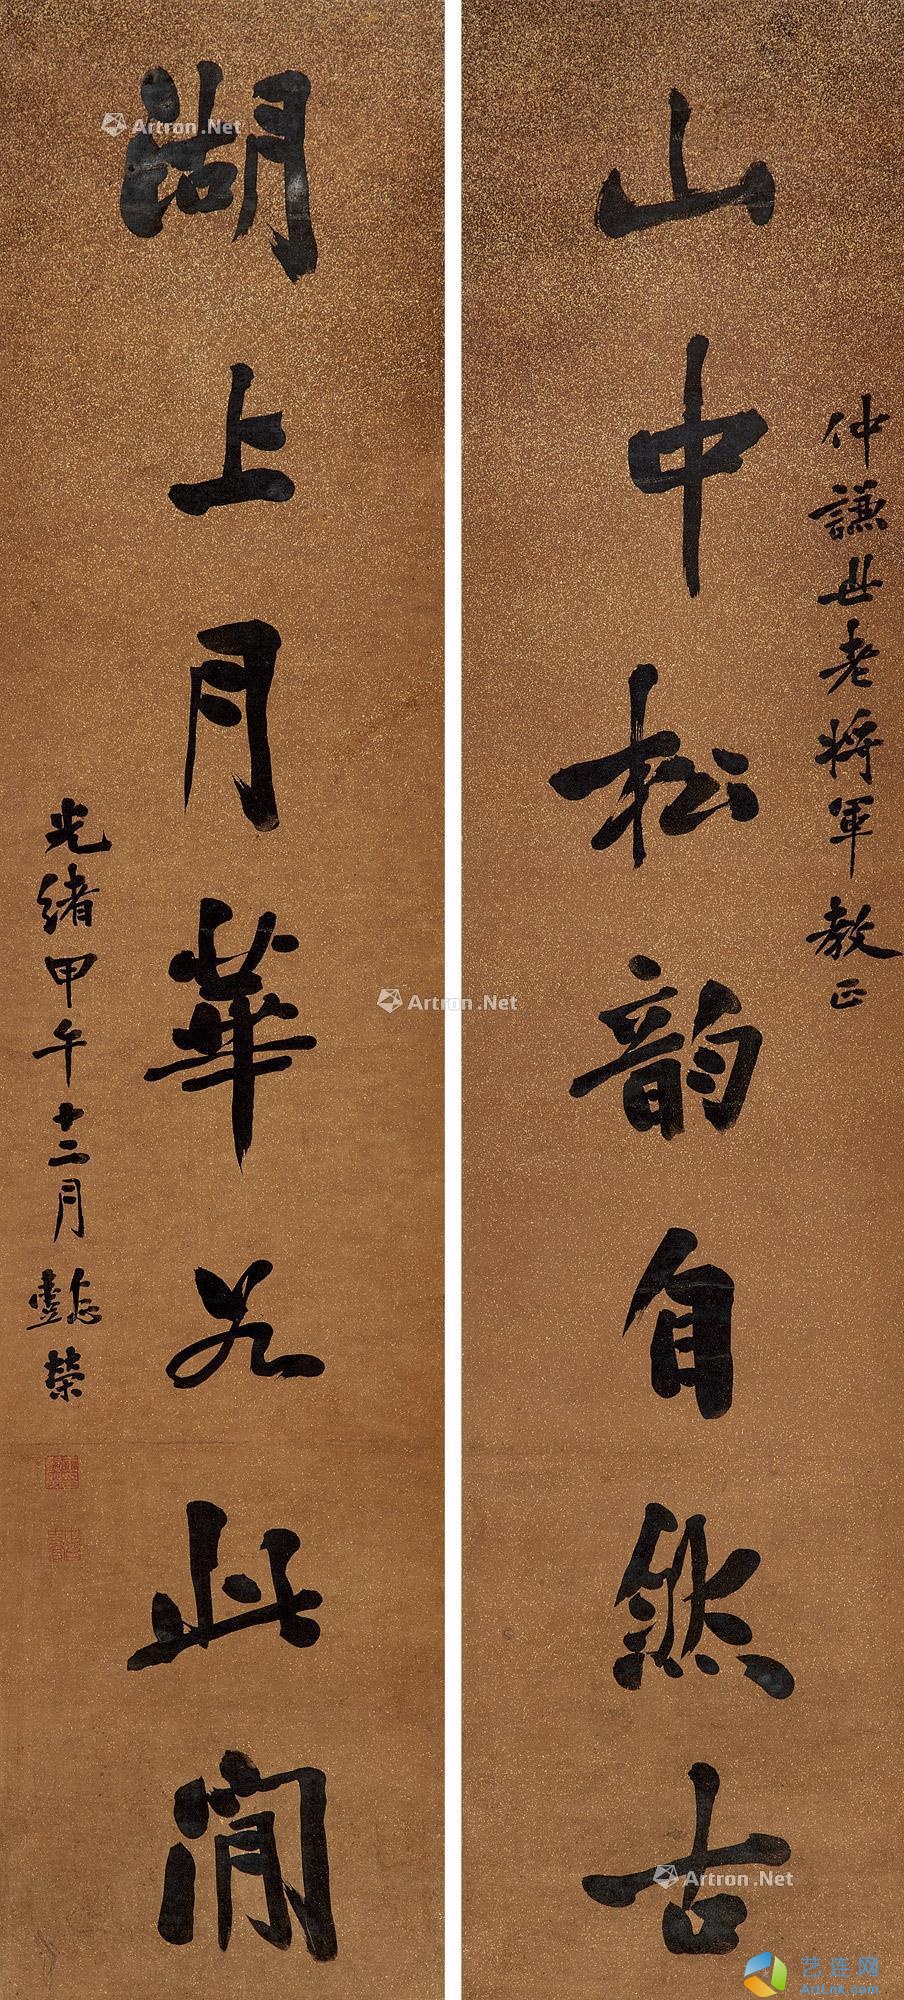 仲謙世老將軍教正
山中松韵自然古
湖上月華此閒
光緒甲午十二月懿榮
Artron.Net
Artron.Net
Artron.Net
艺连网
ArtLnk.com